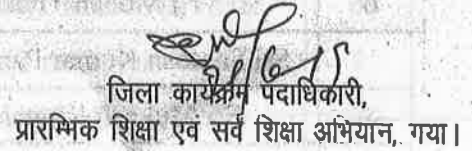 जिला कार्यक्रम पदाधिकारी,
प्रारम्भिक शिक्षा एवं सर्व शिक्षा अभियान, गया।